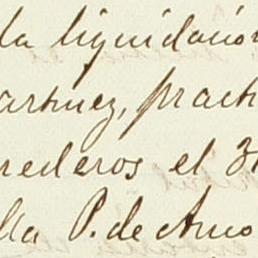 la liquidación
artinez, pract
rederos el 3
lla P. de Amo